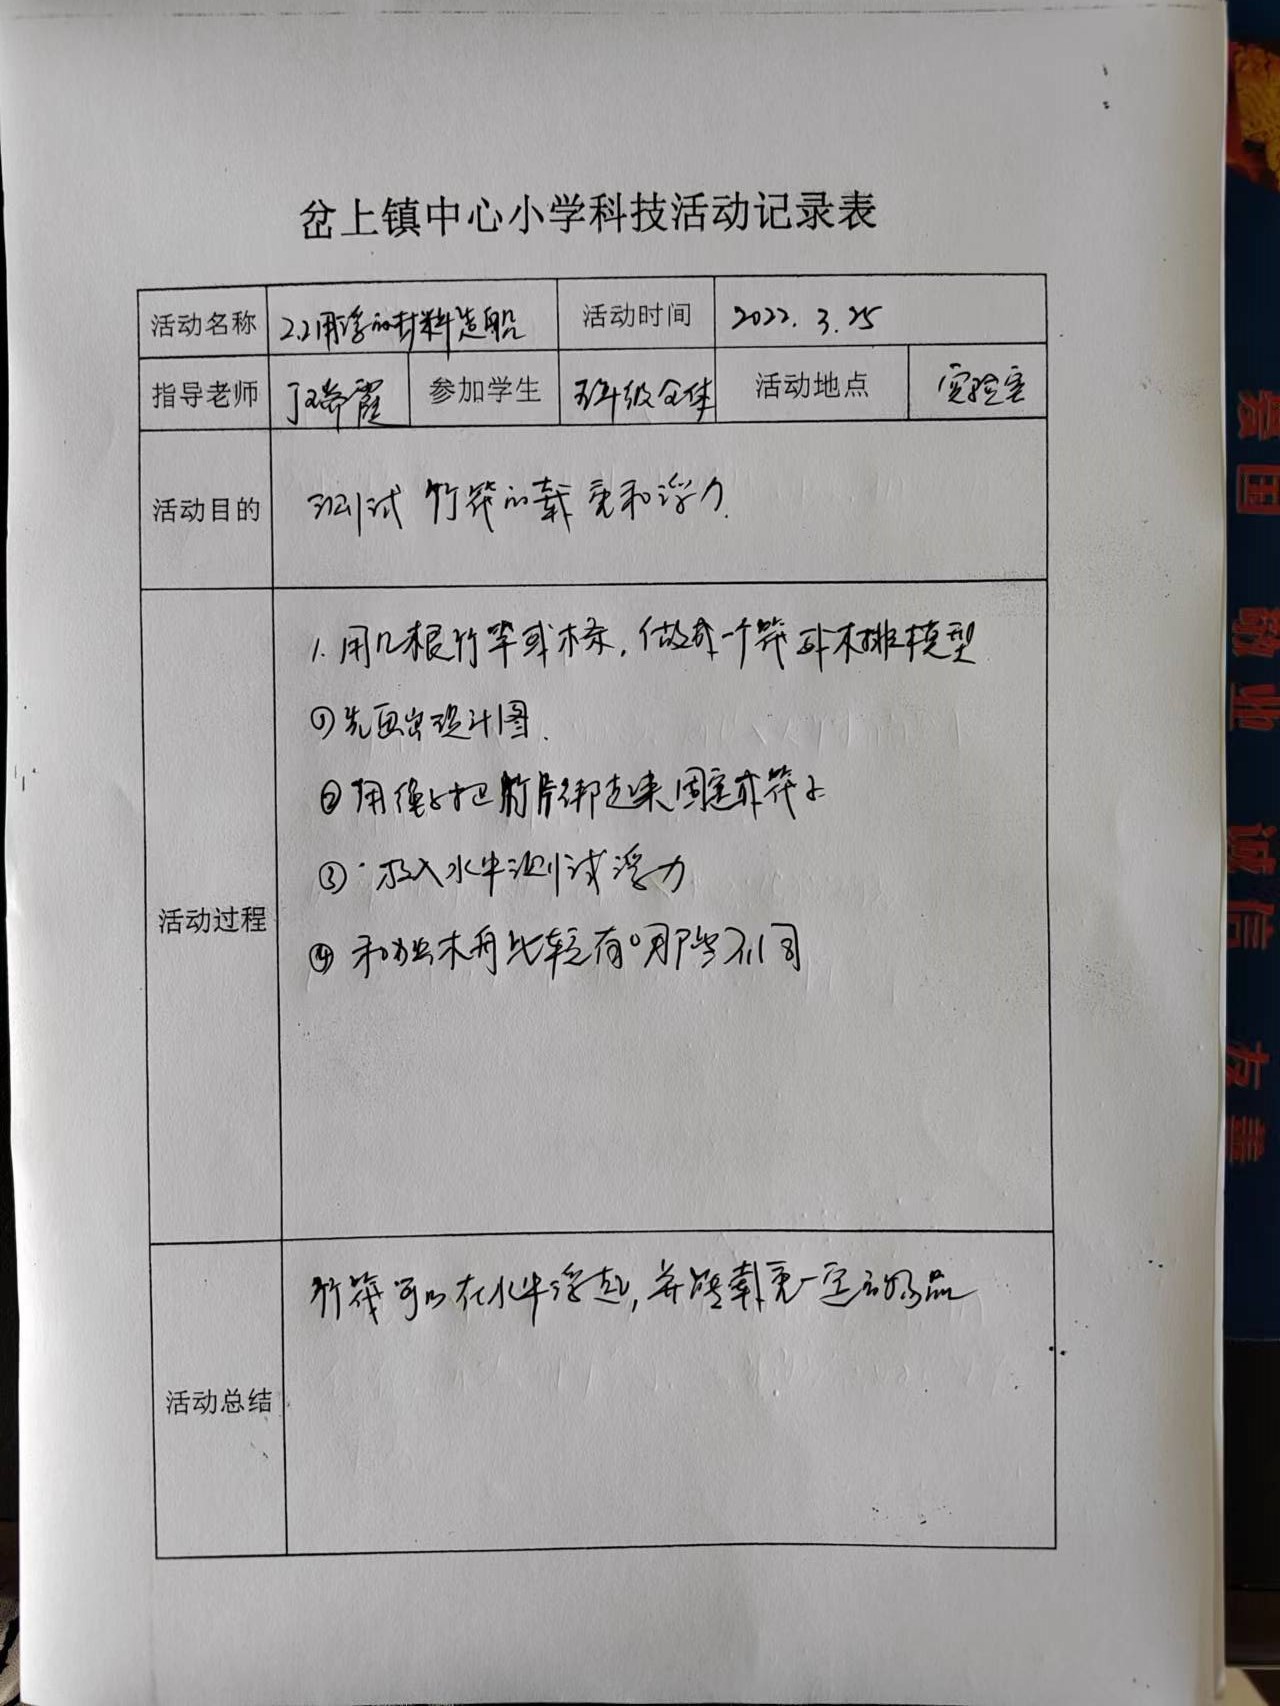 岔上镇中心小学科技活动记录表
活动名称 2.2用浮的材料造船 活动时间 2022.3.25
指导老师 丁瑞霞 参加学生 五年级全体 活动地点 实验室
活动目的 测试竹筏的载重和浮力.
活动过程
1.用几根竹竿或木条,做成一个筏或木排模型
①先画出设计图.
②用绳子把竹片绑起来固定成筏子
③放入水中测试浮力
④和独木舟比较有哪些不同
活动总结 竹筏可以在水中浮起,并能载重一定的物品
爱国 敬业 诚信 友善